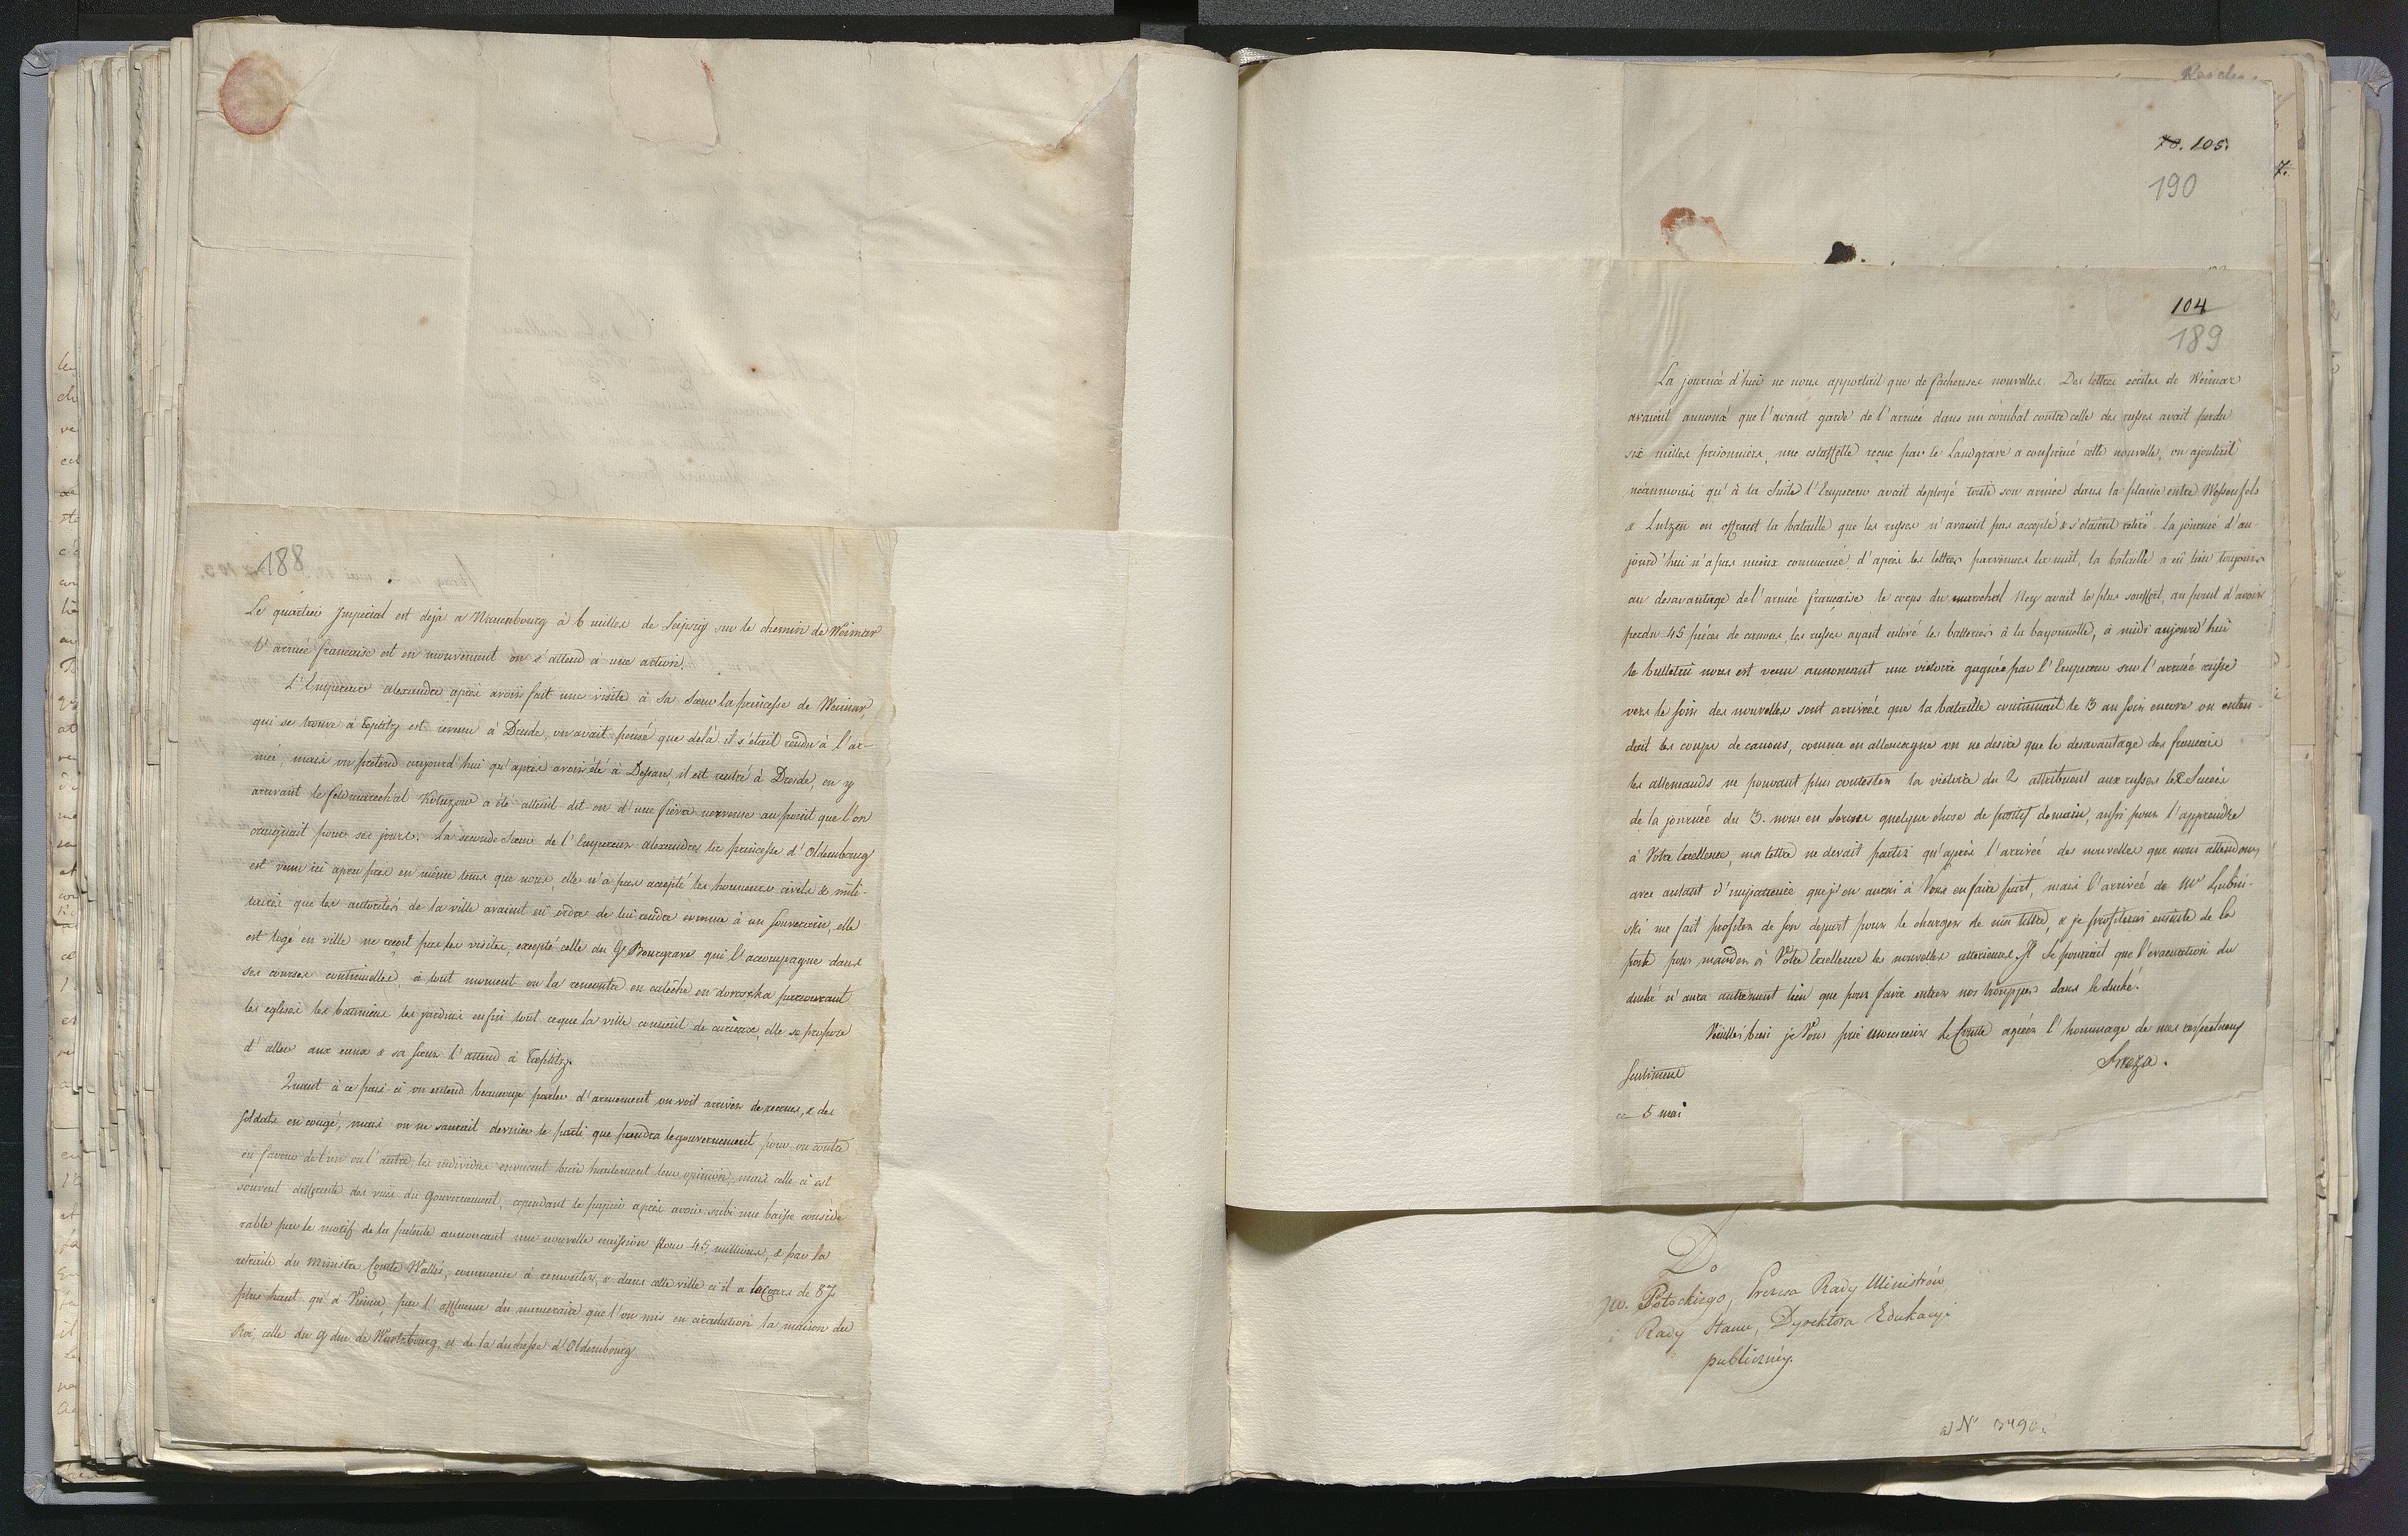 188
Le quartier Imperial est deja a Naumbourg à 6 milles de Leipzig sur le chemin de Weimar
l'armée francaise est en mouvement on s'attend à une action.
L'Empereur alexandre après avoir fait une visite à sa Sœur la princesse de Weimar,
qui se trouve à Toeplitz est revenu à Dresde, on avait pensé que delà il s'était rendu à l'ar-
mée, mais on prétend aujourd'hui qu'après avoir été à Dessau, il est rentré à Dresde, en y
arrivant le feldmarechal Kutuzow a été atteint dit-on d'une fièvre nerveuse au point que l'on
craignait pour ses jours. La seconde Sœur de l'Empereur alexandre la princesse d'Oldenbourg
est venu ici apeu près en même tems que nous, elle n'a pas accepté les honneurs civils & mili-
taires que les autorités de la ville avaient eû ordre de lui rendre comme à un souverain, elle
est logé en ville ne reçoit pas les visites, excepté celle du Gr Bourgrave qui l'accompagne dans
ses courses continuelles, à tout moment on la rencontre en calêche en doroszka parcourant
les eglises les batimens les jardins enfin tout ceque la ville contient de curieux, elle se propose
d'aller aux eaux & sa sœur l'attend à Toeplitz.
Quant à ce pais-ci on entend beaucoup parler d'armement on voit arriver de recrues, & des
soldats en congé, mais on ne saurait deviner le parti que prendra le gouvernement pour ou contre
en faveur de l'un ou l'autre, les individus enoncent bien hautement leur opinion, mais celle ci est
souvent differente des vuës du Gouvernement, cependant le papier après avoir subi une baisse considé-
rable par le motif de la patente annoncant une nouvelle emission pour 45 millions, & par la
retraite du ministre Comte Wallis, commence à remonter, & dans cette ville ci il a le cours de 8%
plus haut qu'à Vienne, par l'affluence du numeraire que l'on mis en circulation la maison du
Roi, celle du g duc de Wurtzbourg, et de la duchesse d'Oldenbourg
70. 105.
190
7.
104
189
La journée d'hier ne nous apportait que de facheuses nouvelles. Des lettres ecrites de Weimar
avaient annoncé que l'avant garde de l'armée dans un combat contre celle des russes avait perdu
six milles prisonniers, une estaffette reçue par le Landgrave a confirmé cette nouvelle, on ajoutait
néanmoins qu'à la suite l'Empereur avait deployé toute son armée dans la plaine entre Weissenfels
& Lutzen en offrant la bataille que les russes n'avaient pas accepté & s'étaient retiré. la journée d'au-
jourd'hui n'a pas mieux commencé, d'après les lettres parvenues la nuit, la bataille a eû lieu toujours
au desavantage de l'armée française le corps du marechal Ney avait le plus souffert, au point d'avoir
perdu 45 pièces de canons, les russes ayant enlevé les batteries à la bayonnette, à midi aujourd'hui
le bulletin nous est venu annoncant une victoire gagnée par l'Empereur sur l'armée russe
vers le soir des nouvelles sont arrivées que la bataille continuait le 3 au soir encore on enten-
dait les coups de canons, comme en allemagne on ne desire que le desavantage des francais
les allemands ne pouvant plus contester la victoire du 2 attribuent aux russes le Succès
de la journée du 3. nous en saurons quelque chose de positif demain, aussi pour l'apprendre
à Votre Excellence, ma lettre ne devait partir qu'après l'arrivée des nouvelles que nous attendons
avec autant d'impatience que j'en aurai à Vous en faire part, mais l'arrivée de Mr Lubin-
ski me fait profiter de son depart pour le charger de ma lettre, & je profiterai ensuite de la
poste pour mander à Votre Excellence les nouvelles ulterieures. Il se pourrait que l'evacuation du
duché n'aura autrement lieu que pour faire entrer nos trouppes dans le duché.
Veuillés bien je Vous prie monsieur le Comte agréer l'hommage de mes respectueux
sentimens
Breza.
ce 5 mai
Do
JW. Potockiego, Prezesa Rady Ministrów
i Rady Stanu, Dyrektora Edukacyi
publiczney.